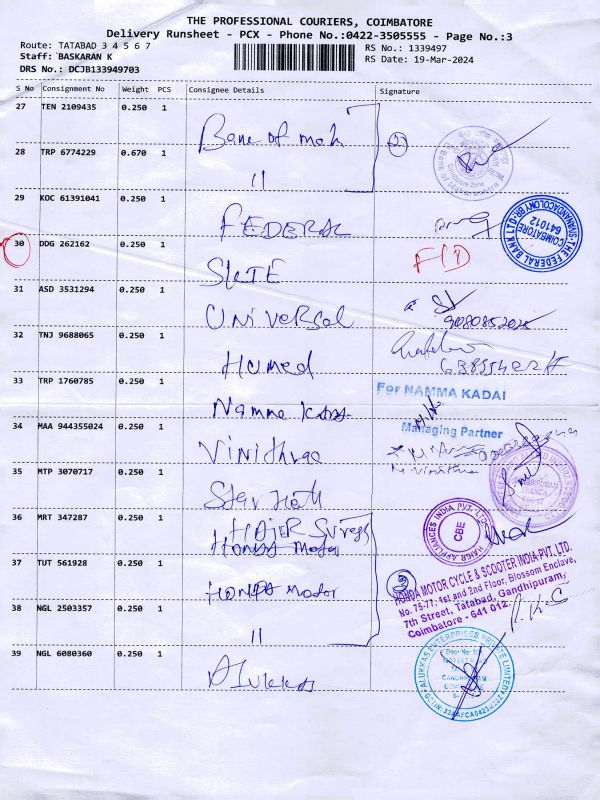 THE PROFESSIONAL COURIERS, COIMBATORE
Delivery Runsheet - PCX - Phone No.:0422-3505555 - Page No.:3
Route: TATABAD 3 4 5 6 7
RS No.: 1339497
Staff: BASKARAN K
RS Date: 19-Mar-2024
DRS No.: DCJB133949703
S No Consignment No Weight PCS Consignee Details Signature
27 TEN 2109435 0.250 1
Bank of mah
28 TRP 6774229 0.670 1
11
2
29 KOC 61391041 0.250 1
FEDERAL
THE FEDERAL BANK LTD
COIMBATORE
641012
30 DDG 262162 0.250 1
31 ASD 3531294 0.250 1
Universal
32 TNJ 9688065 0.250 1
Humed
33 TRP 1760785 0.250 1
Namma Kadai
For NAMMA KADAI
Managing Partner
34 MAA 944355024 0.250 1
35 MTP 3070717 0.250 1
Star Hall
36 MRT 347287 0.250 1
HAIER
Honda Motor
HAIER APPLIANCES INDIA PVT. LTD.
CBE
37 TUT 561928 0.250 1
Honda Motor
HONDA MOTOR CYCLE & SCOOTER INDIA PVT. LTD.
No. 75-77, 1st and 2nd Floor, Blossom Enclave,
7th Street, Tatabad, Gandhipuram,
Coimbatore - 641 012.
38 NGL 2503357 0.250 1
11
39 NGL 6080360 0.250 1
Alukkas
ALUKKAS ENTERPRISES PRIVATE LIMITED